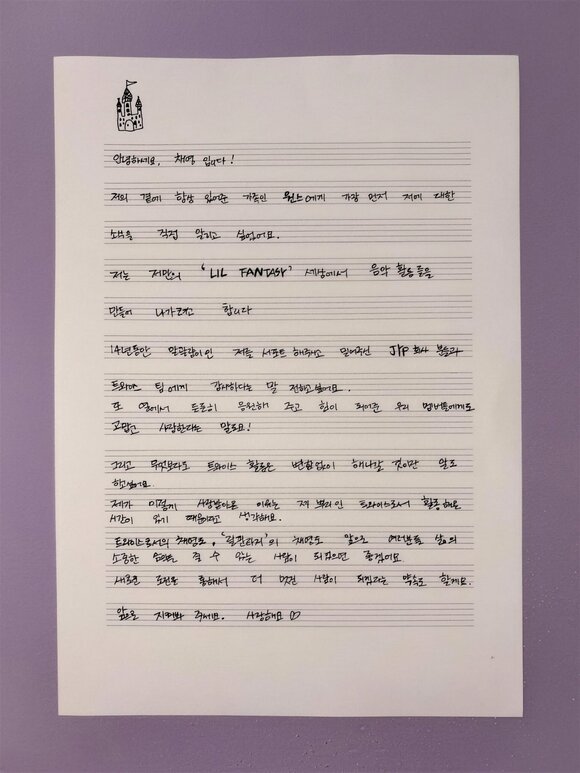 안녕하세요, 채영 입니다!
저의 곁에 항상 있어준 가족인 원스에게 가장 먼저 저에 대한
소식을 직접 알리고 싶었어요.
저는 저만의 'LIL FANTASY' 세상에서 음악 활동들을
만들어 나가려고 합니다
14년동안 저를 서포트 해주시고 믿어주신 JYP 회사 분들과
트와이스 팀에게 감사하다는 말 전하고싶어요..
또 옆에서 든든히 응원해 주고 힘이 되어준 우리 멤버들에게도
고맙고 사랑한다는 말도요!
그리고 무엇보다도 트와이스 활동은 변함없이 해나갈 것이란 말도
하고싶어요.
제가 이렇게 사랑받아온 이유는 제 뿌리인 트와이스로서 활동해온
시간이 있기 때문이라고 생각해요.
트와이스로서의 채영도, '릴판타지'의 채영도 앞으로 여러분들 삶의
소중한 줄 수 있는 사람이 되길 좋겠어요
새로운 도전을 통해서 더 멋진 사람이 되겠다는 약속도 할게요.
앞으로 지켜봐 주세요. 사랑해요 ♡